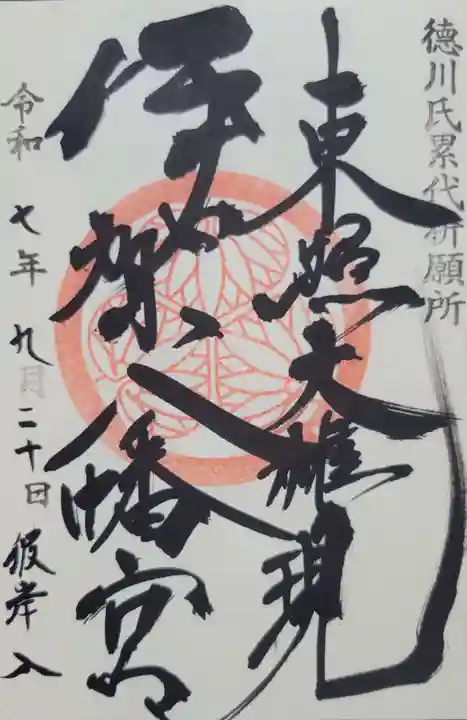 徳川氏累代祈願所
東照大権現
伊賀八幡宮
令和七年九月二十日彼岸入